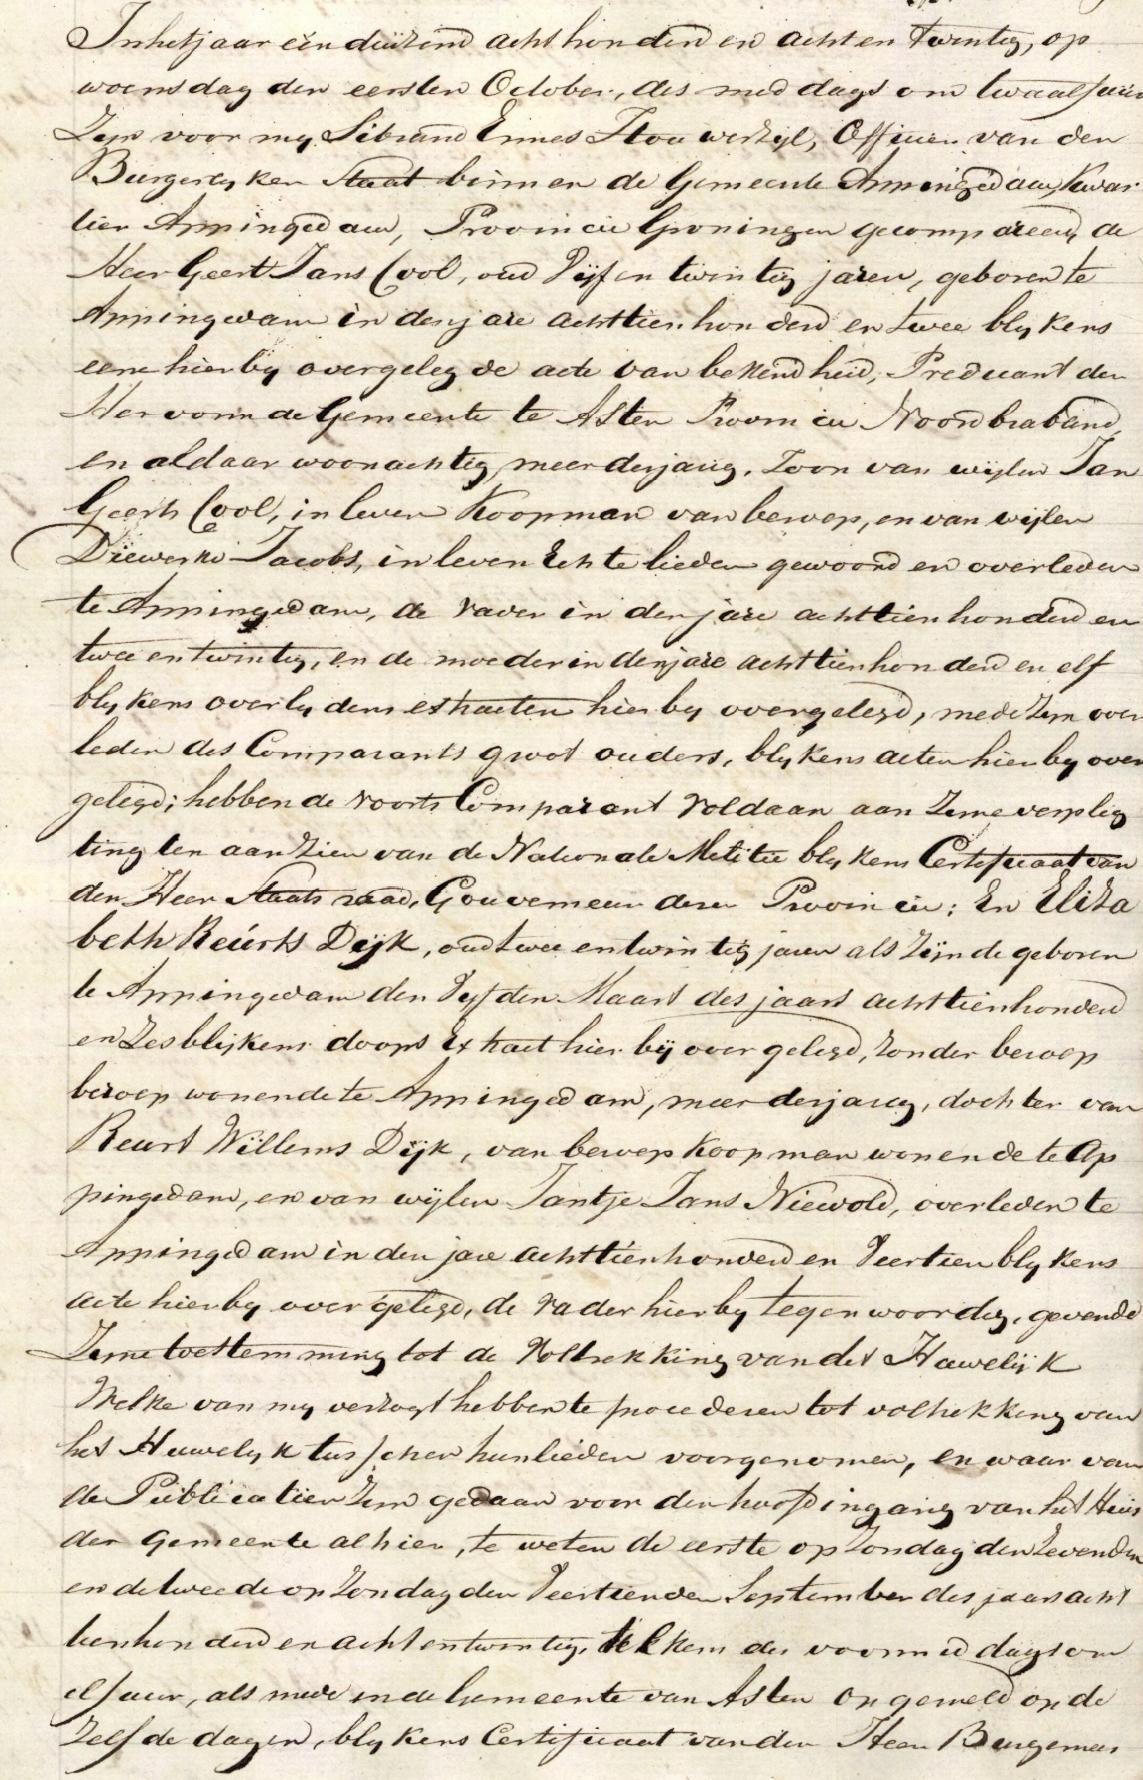 In het jaar een duizend acht honderd en acht en twintig, op
woensdag den eersten October, des middags om twaalf uur
Zijn voor my Sibrand Ennes Stouwerzyl, Officier van den
Burgerlyken Staat binnen de Gemeente Appingedam, Kwar
tier Appingedam, Provincie Groningen gecompareerd, de
Heer Geert Jans Cool, oud Vijf en twintig jaren, geboren te
Appingedam in den jare achttienhonderd en twee blykens
eene hierby overgelegde acte van bekendheid, Predicant der
Hervormde Gemeente te Asten Provincie Noordbraband,
en aldaar woonachtig, meerderjarig, Zoon van wijlen Jan
Geerts Cool, in leven Koopman van beroep, en van wijlen
Diewerke Jacobs, in leven Echte lieden gewoond en overleden
te Appingedam, de Vader in den jare achttienhonderd en
twee en twintig, en de moeder in den jare achttienhonderd en elf
blykens overlydens extracten hierby overgelegd, mede zijn over
leden des Comparants groot ouders, blykens acten hierby over
gelegd; hebbende voorts Comparant voldaan aan Zyne verplig
ting ten aanzien van de Nationale Militie blykens Certificaat van
den Heer Staatsraad, Gouverneur dezer Provincie; En Eliza
beth Reúrts Dijk, oud twee en twintig jaren als zijnde geboren
te Appingedam den Vyfden Maart des jaars achttienhonderd
en Zes blijkens doops Extract hier bij overgelegd, zonder beroep
beroep wonende te Appingedam, meerderjarig, dochter van
Reurt Willems Dijk, van beroep Koopman wonende te Ap
pingedam, en van wijlen Jantje Jans Niewold, overleden te
Appingedam in den jare achttienhonderd en Veertien blykens
acte hierby overgelegd, de Vader hierby tegenwoordig, gevende
Zyne toestemming tot de Voltrekking van dit Huwelijk
Welke van my verzogt hebben te procederen tot voltrekking van
het Huwelyk tusschen hunlieden voorgenomen, en waar van
de Publicatien Zyn gedaan voor den hoofdingang van het Huis
der Gemeente alhier, te weten de eerste op Zondag den Zevenden
en de tweede op Zondag den Veertienden September des jaars acht
tienhonderd en acht en twintig, telkens des voormiddags om
elf uur, als mede in de Gemeente van Asten opgemeld op de
Zelfde dagen, blykens Certificaat van den Heer Burgemees